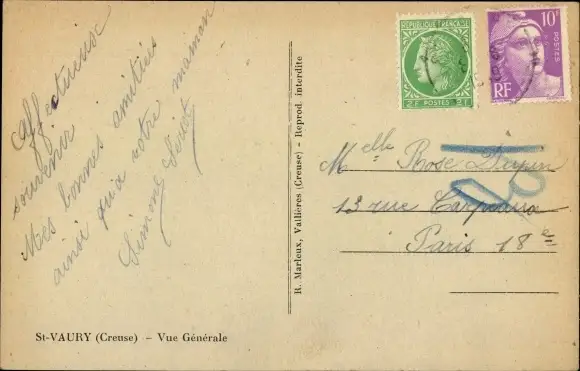 affectueux
souvenir
Mes bonnes amitiés
ainsi qu'à votre maman
Simone
RÉPUBLIQUE FRANÇAISE
2F POSTES 2F
10F
POSTES
RF
Melle Rose
13 rue Carpeaux
Paris 18e
R. Marleux, Vallières (Creuse) - Reprod. interdite
St-VAURY (Creuse) - Vue Générale